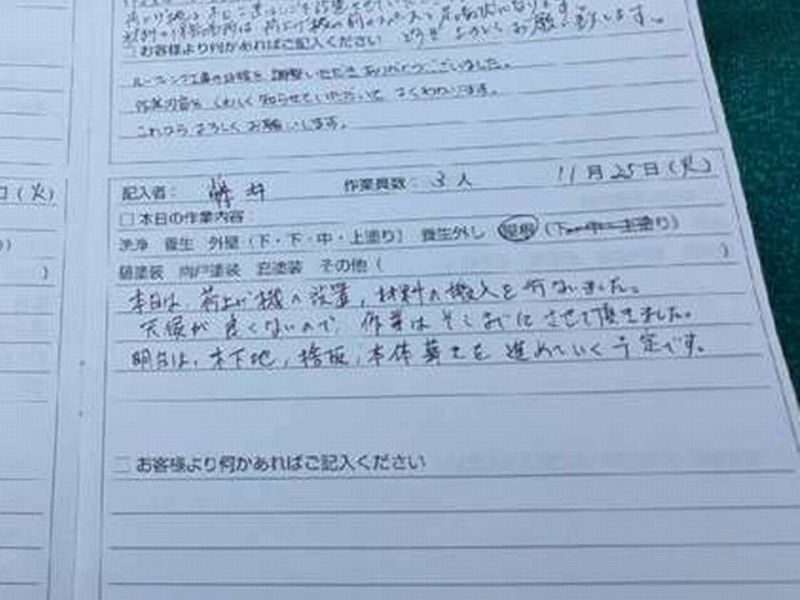 どうぞよろしくお願い致します。
□お客様より何かあればご記入ください
ルーフィング工事の日程を調整いただきありがとうございました。
作業内容をくわしく知らせていただいてよくわかります。
これからよろしくお願いします。
(火)
記入者: 藤井 作業員数: 3人 11月25日(火)
□本日の作業内容
洗浄 養生 外壁(下・下・中・上塗り) 養生外し 屋根(下・中・上塗り)
樋塗装 雨戸塗装 玄塗装 その他( )
本日は、荷上げ機の設置、材料の搬入を行ないました。
天候が良くないので、作業はそこまでにさせて頂きました。
明日は、木下地、捨板、本体葺きを進めていく予定です。
□お客様より何かあればご記入ください